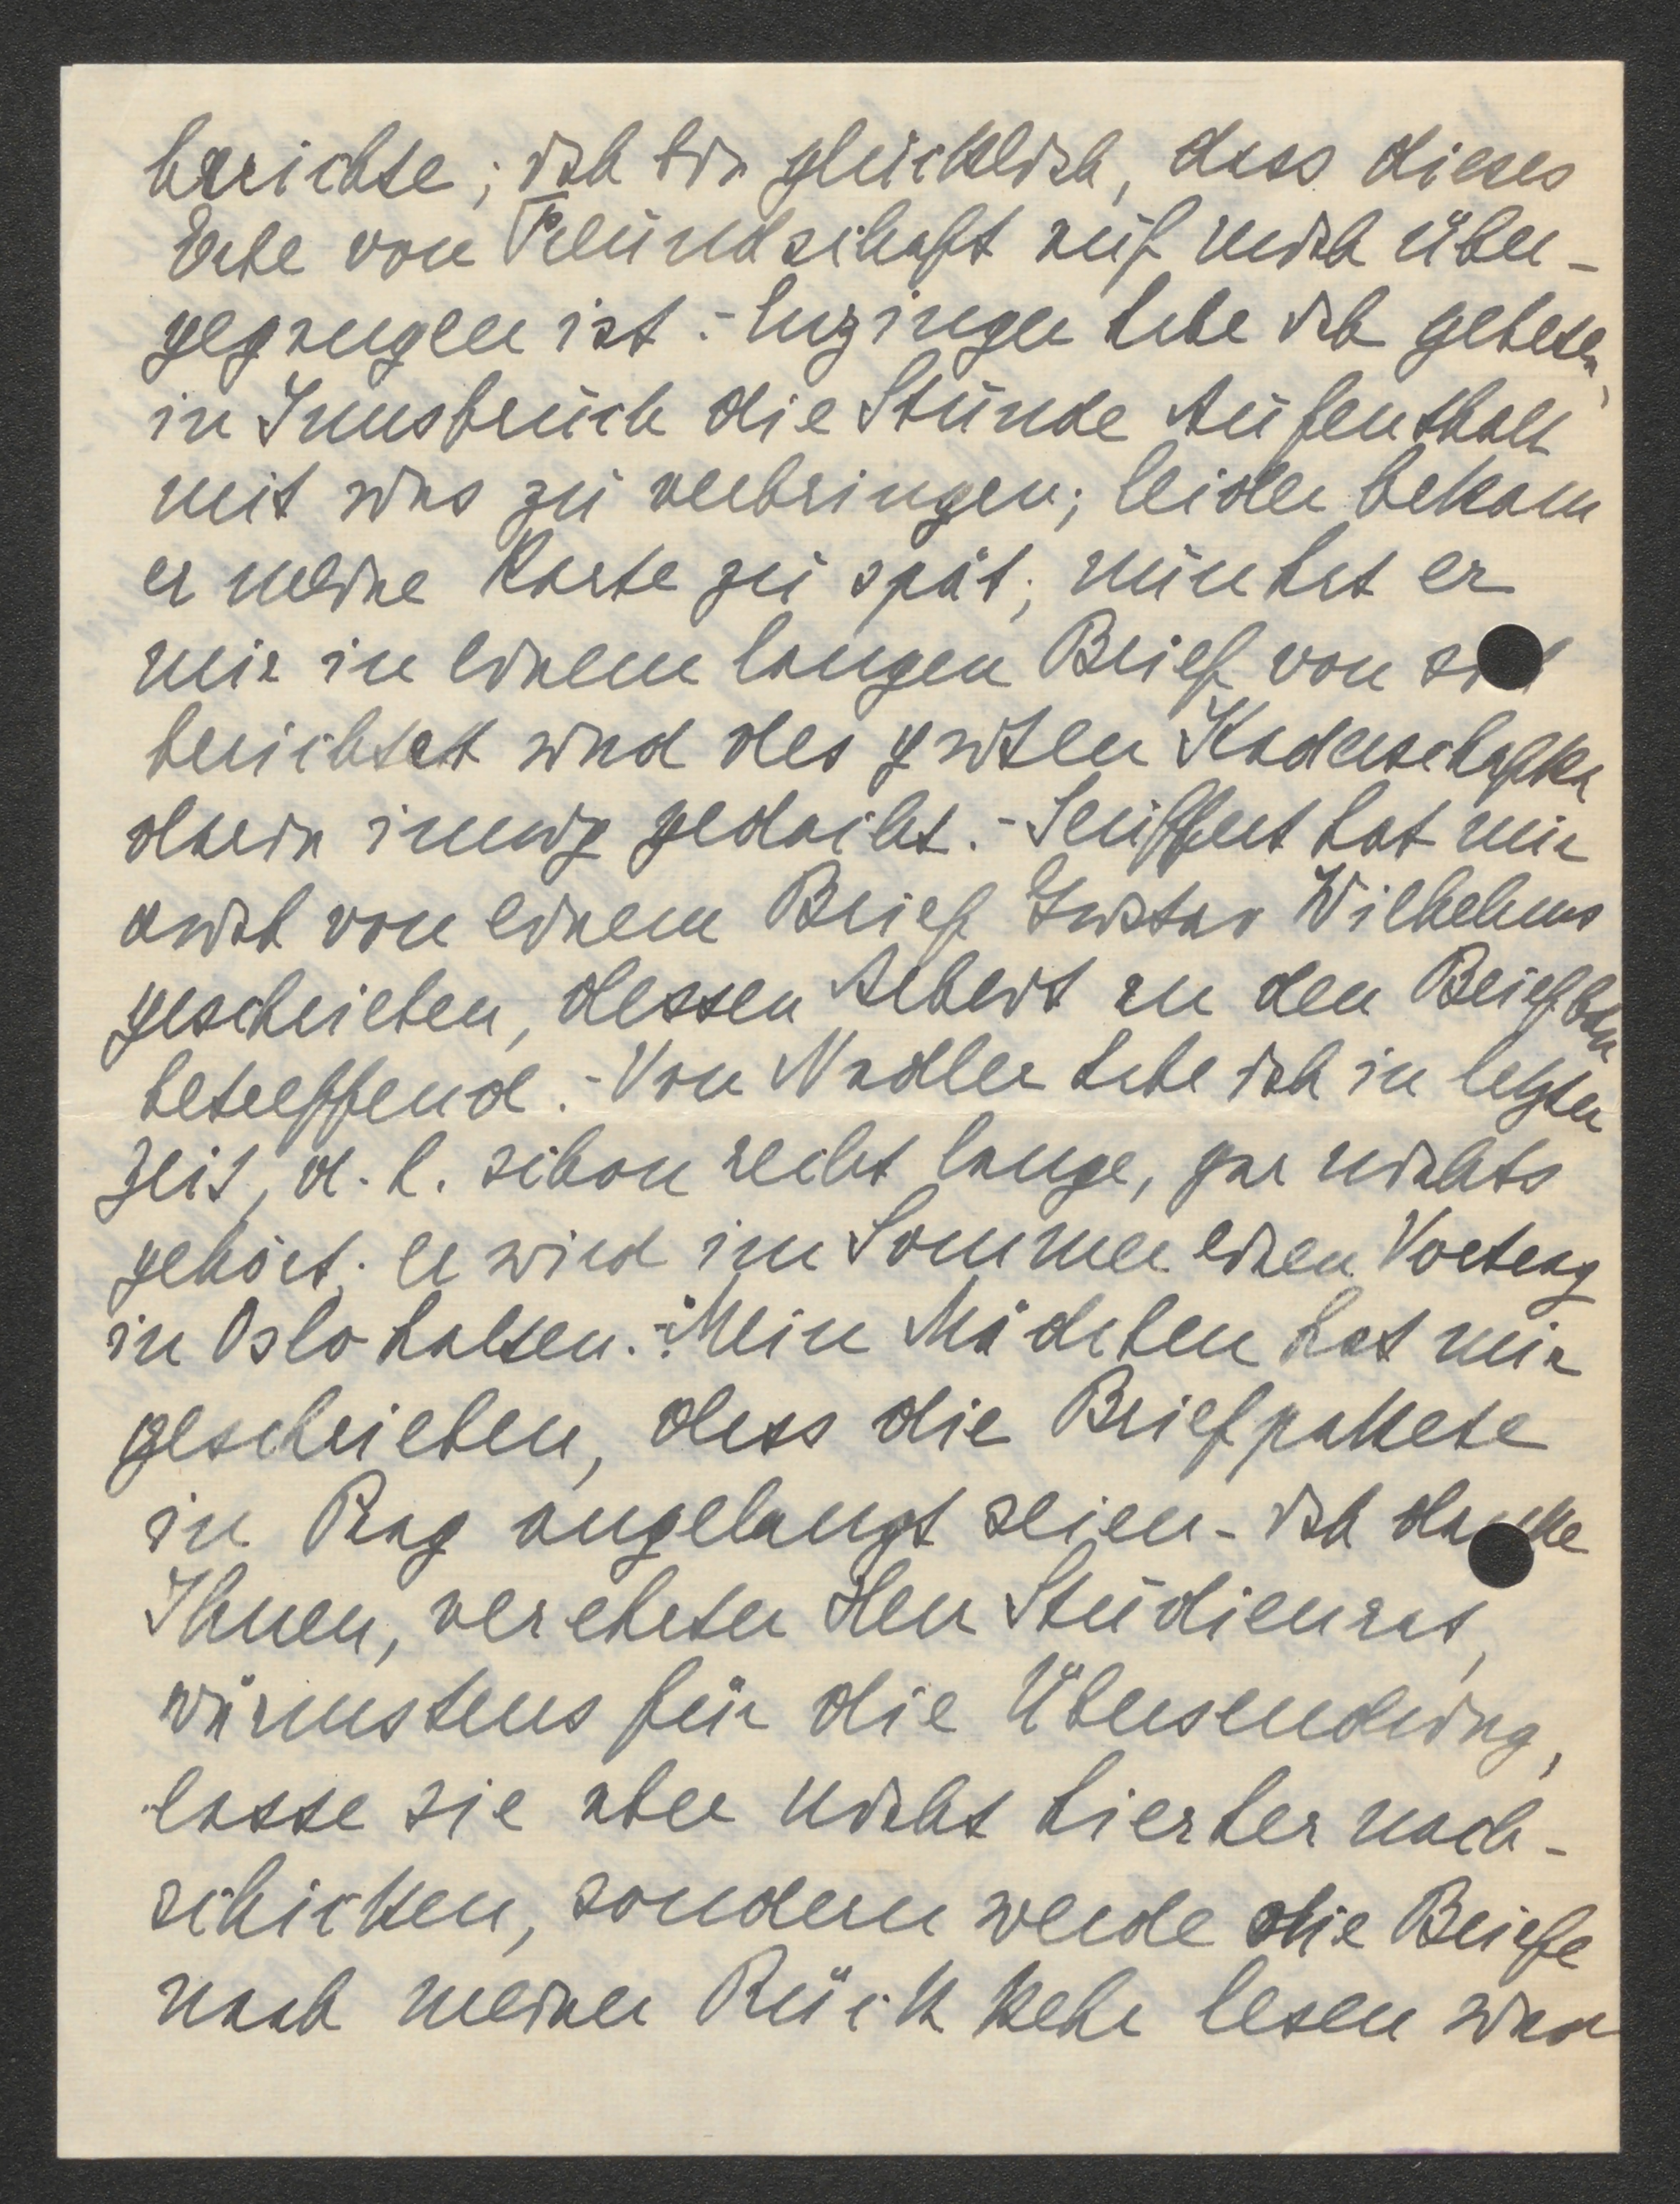 berichte; ich bin glücklich, dass dieses
Erbe von Freundschaft auf mich über-
gegangen ist. - Enzinger habe ich gebeten,
in Innsbruck die Stunde Aufenthalt
mit uns zu verbringen; leider bekam
er meine Karte zu spät; nun hat er
mir in einem langen Brief von sich
berichtet und des guten Kaderschafka
darin innig gedacht. - Seuffert hat mir
auch von einem Brief Gustav Wilhelms
geschrieben, dessen Arbeit an den Briefbän
betreffend. - Von Nadler habe ich in letzter
Zeit, d. h. schon recht lange, gar nichts
gehört; er wird im Sommer einen Vortrag
in Oslo halten. - Mein Mädchen hat mir
geschrieben, dass die Briefpakete
in Prag angelangt seien - ich danke
Ihnen, verehrter Herr Studienrat,
wärmstens für die Übersendung,
lasse sie aber nicht hierher nach-
schicken, sondern werde die Briefe
nach meiner Rückkehr lesen und